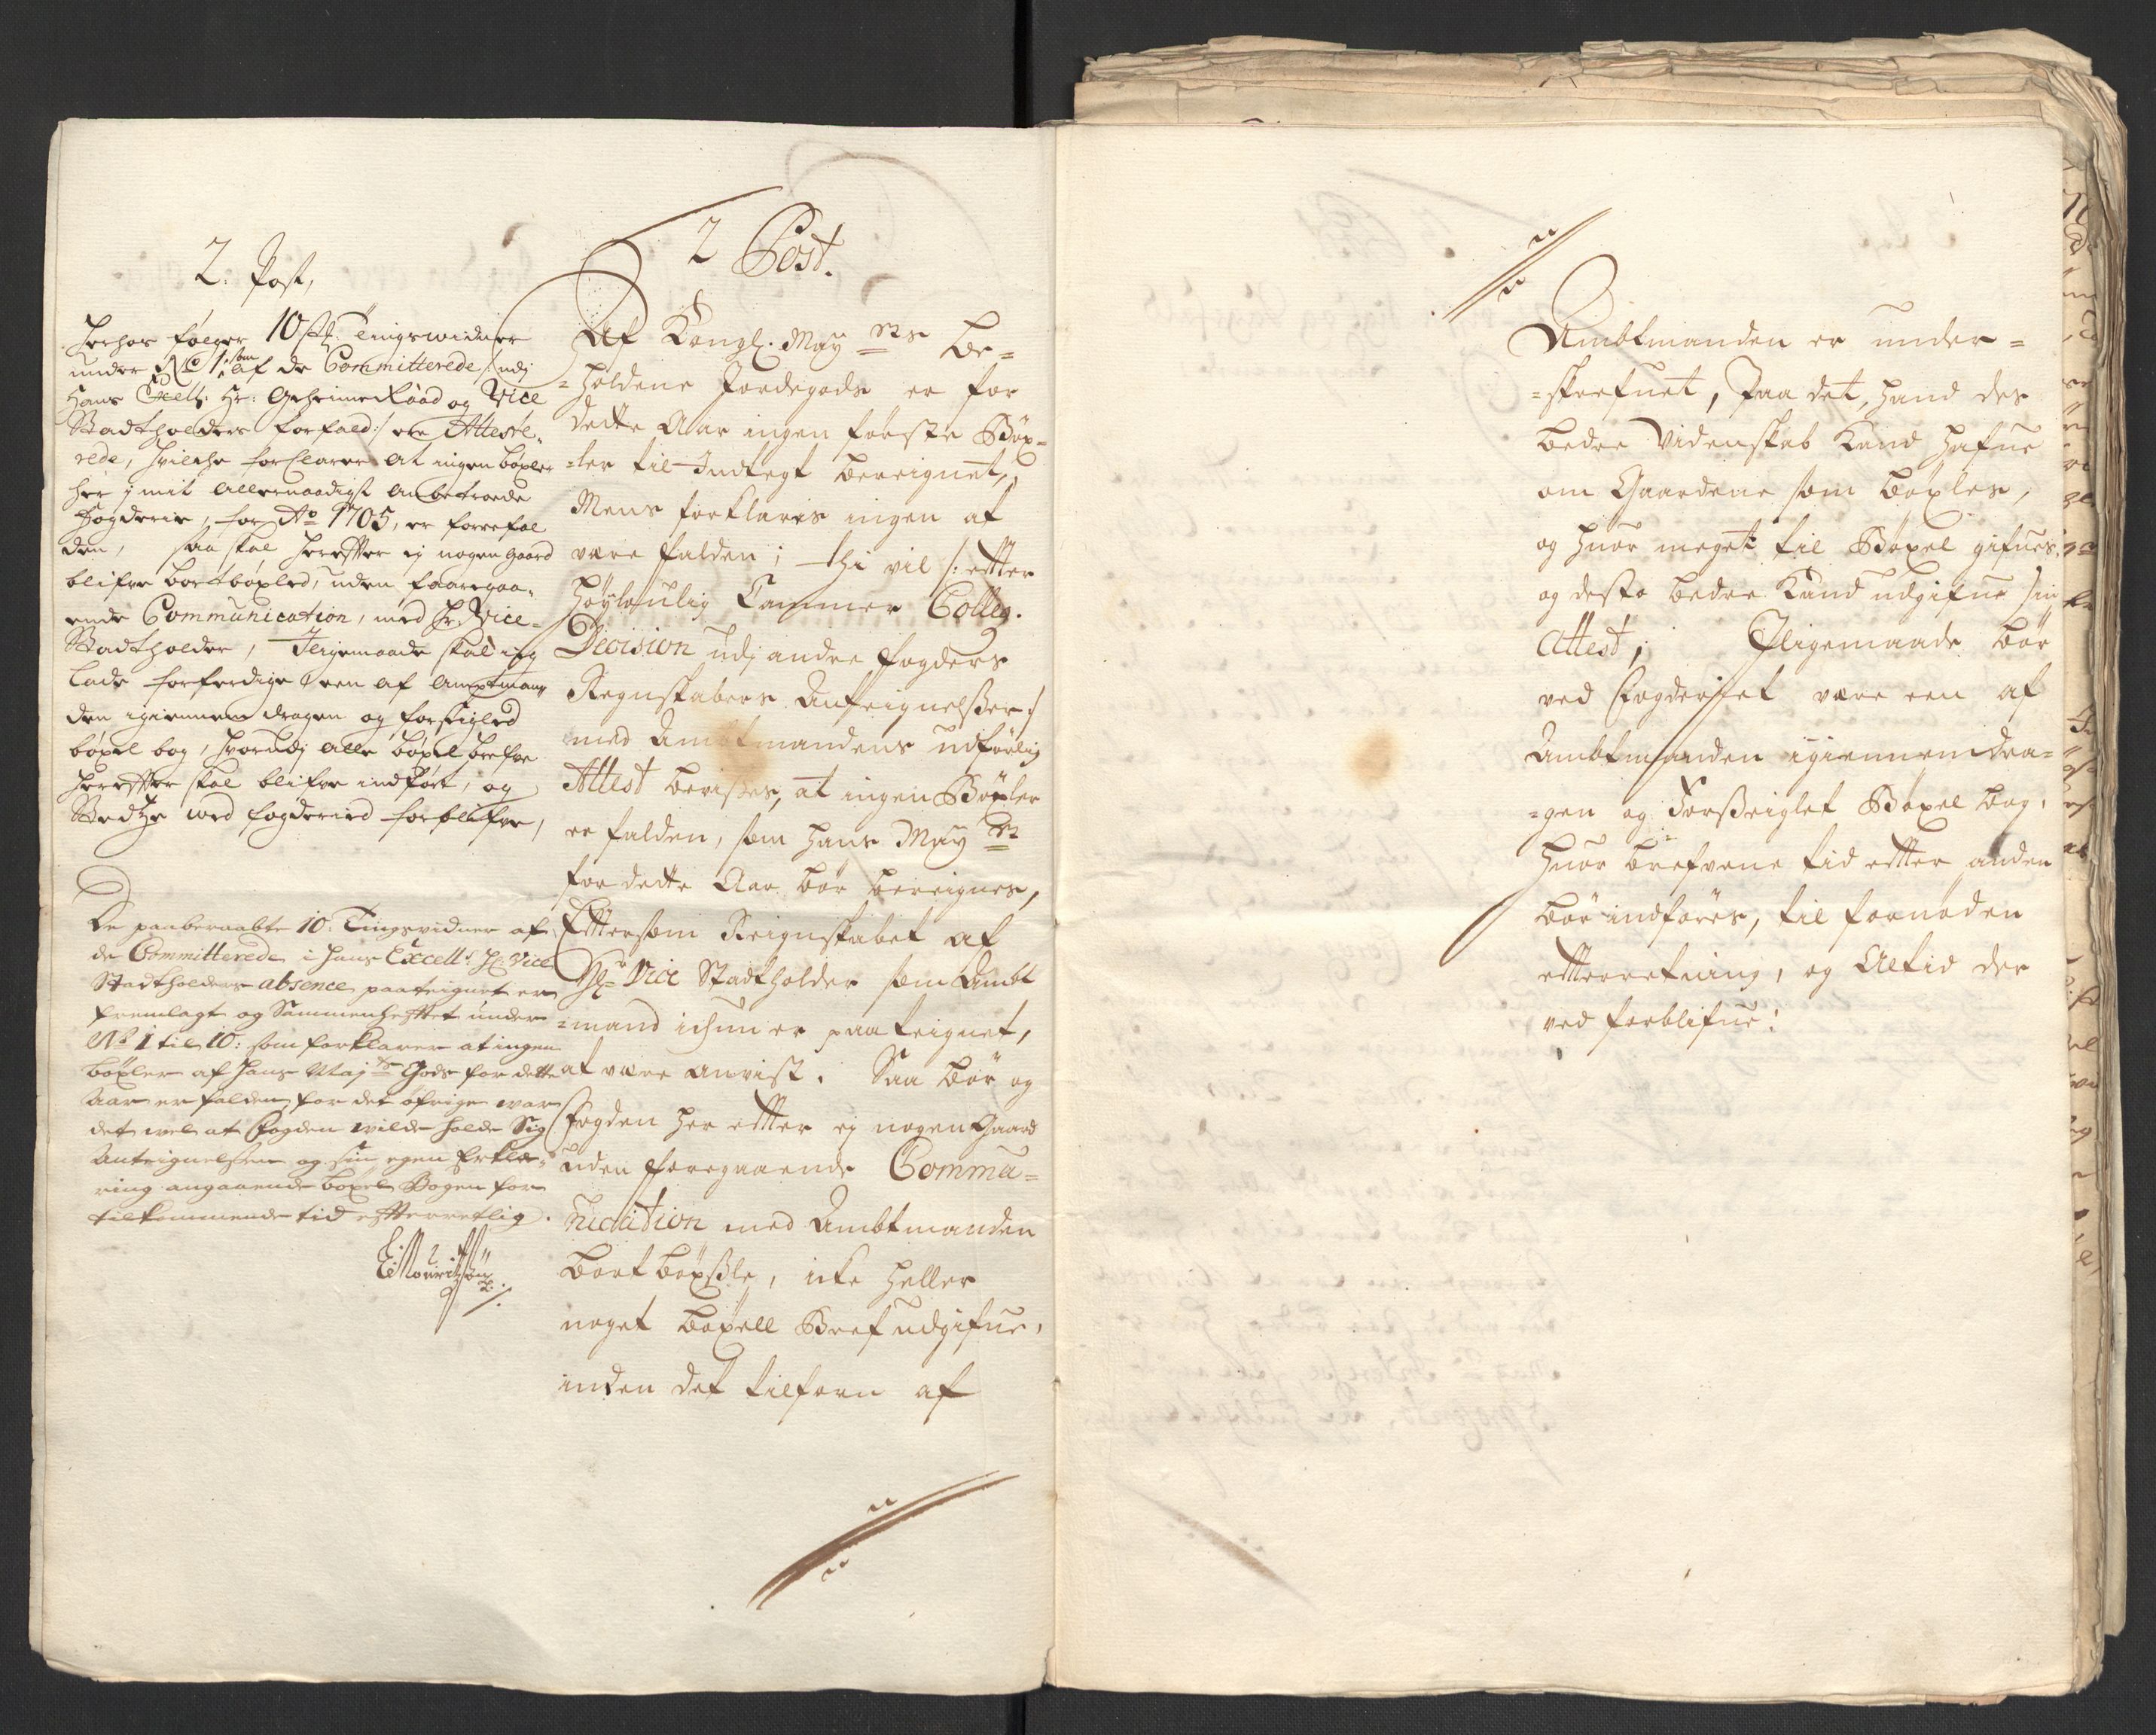 2. Post,
Herhos følger 10 st: Tingswidner
under No 1, som af de Committerede /: udj
Hans Excell: Hr: Geheime Raad og Vice
Stadtholders forfald :/ ere Atteste-
rede, hvilche forklarer at ingen böxler
her j mit allernaadigst anbetroede
fogderie, for Ao 1705, er forrefal
den, saa skal herefter ej nogen gaard
blifve bortböxled, uden faaregaa-
ende Communication, med Hr. Vice-
Stadtholder, Jligemaade skal ieg
lade forferdige een af Amptman-
den igiennemdragen og forseigled
böxel bog, hvorudj alle böxel brefve
herefter skal blifve indført, og
Stedtze wed fogderied forblifve,
De paaberaabte 10: Tingsvidner af
de Committerede i Hans Excell: Hr Vice
Stadtholders absence paateignet er
fremlagt og Sammenhefftet under
No 1 til 10: som forklarer at ingen
böxler af Hans Maj ts Gods for dette
Aar er falden, for det øfrige war
det vel at fogden wilde holde Sig
Anteignelsen og sin egen Erklæ-
ring angaaende böxel Bogen for
tilkommende tid efterretlig.
2 Post.
Af Kongl. May ts be-
=holdene Jordegods er for
dette Aar ingen förste Böx-
=ler til Indtegt bereignet,
Mens forklaris ingen at
være falden; thi vil /: efter
Höylaulig Cammer Colleg.
Decision udj andre fogders
Regnskabers Anteignelsser :/
med Ambtmandens udförlig
Attest bevisses, at ingen Böxler
er falden, som Hans May t
for dette Aar bör bereignes,
Eftersom Reignskabet af
Hr Vice Stadtholder som Ambt
=mand ichun er paateignet,
at være anvist. Saa bör og
fogden her efter ej nogen Gaard
uden foregaaende Commu=
nication med Ambtmanden
bortböxsle, icke heller
noget böxell Bref udgifue,
inden det tilforn af
Ambtmanden er under=
=skrefuet, Paa det, hand des
bedre Videnskab Kand hafue
om Gaardene som böxles,
og huor meget til Böxel gifues,
og desto bedre Kand udgifue sin
Attest; Jligemaade bör
ved Fogderjet være een af
Ambtmanden igiennemdra=
=gen og Forsseiglet Böxel bog,
huor brefvene tid efter anden
bör indföres, til fornöden
efterretning, og Altid der
ved forblifue.